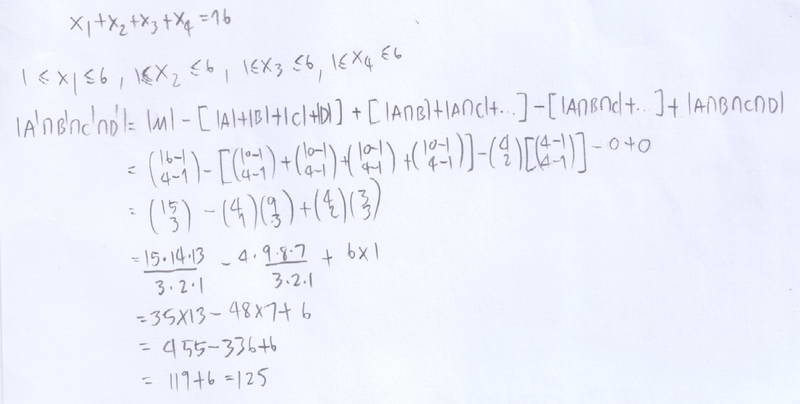 x₁+x₂+x₃+x₄=16
1≤x₁≤6, 1≤x₂≤6, 1≤x₃≤6, 1≤x₄≤6
|A'∩B'∩C'∩D'|= |M| - [|A|+|B|+|C|+|D|] + [|A∩B|+|A∩C|+...] - [|A∩B∩C|+...] + |A∩B∩C∩D|
= (16-1 4-1) - [(10-1 4-1)+(10-1 4-1)+(10-1 4-1)+(10-1 4-1)] - (4 2)[(4-1 4-1)] - 0+0
= (15 3) - (4 1)(9 3) + (4 2)(3 3)
= 15·14·13/3·2·1 - 4·9·8·7/3·2·1 + 6x1
= 35x13 - 48x7 + 6
= 455-336+6
= 119+6 = 125